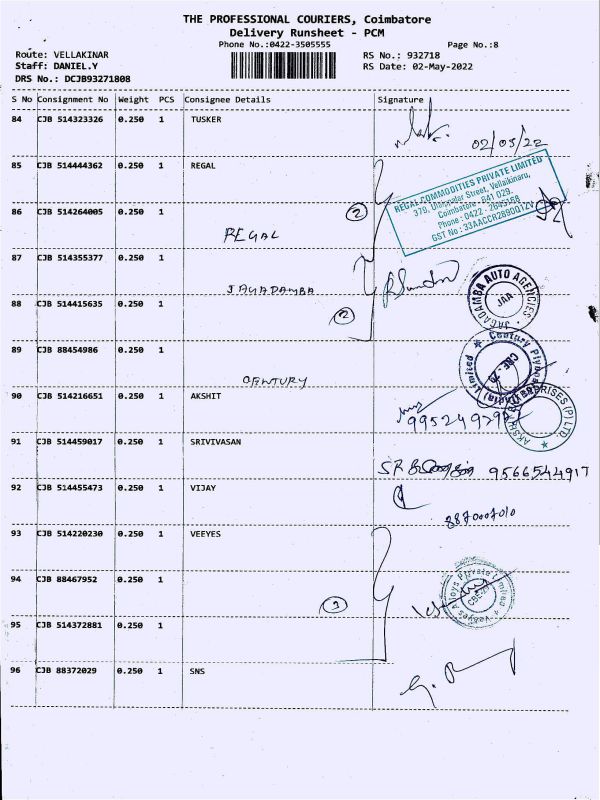 THE PROFESSIONAL COURIERS, Coimbatore
Delivery Runsheet - PCM
Phone No.:0422-3505555
Page No.:8
Route: VELLAKINAR
RS No.: 932718
Staff: DANIEL.Y
RS Date: 02-May-2022
DRS No.: DCJB93271808
S No Consignment No Weight PCS Consignee Details Signature
84 CJB 514323326 0.250 1 TUSKER
02/05/22
85 CJB 514444362 0.250 1 REGAL
REGAL COMMODITIES PRIVATE LIMITED
379, Dhinpalar Street, Vellaikinaru,
Coimbatore - 641 029.
Phone : 0422 - 2645168
GST No : 33AACCR2890Q1ZV
86 CJB 514264005 0.250 1
2
REGAL
87 CJB 514355377 0.250 1
JAGADAMBA
JAGADAMBA AUTO AGENCIES
JAA
88 CJB 514415635 0.250 1
2
89 CJB 88454986 0.250 1
CENTURY
Century Plyboards (India) Limited
CBE-29
90 CJB 514216651 0.250 1 AKSHIT
(P) LTD.
91 CJB 514459017 0.250 1 SRIVIVASAN
9566544917
92 CJB 514455473 0.250 1 VIJAY
8870007010
93 CJB 514220230 0.250 1 VEEYES
94 CJB 88467952 0.250 1
3
Alloys Private Limited
CBE-29
95 CJB 514372881 0.250 1
96 CJB 88372029 0.250 1 SNS